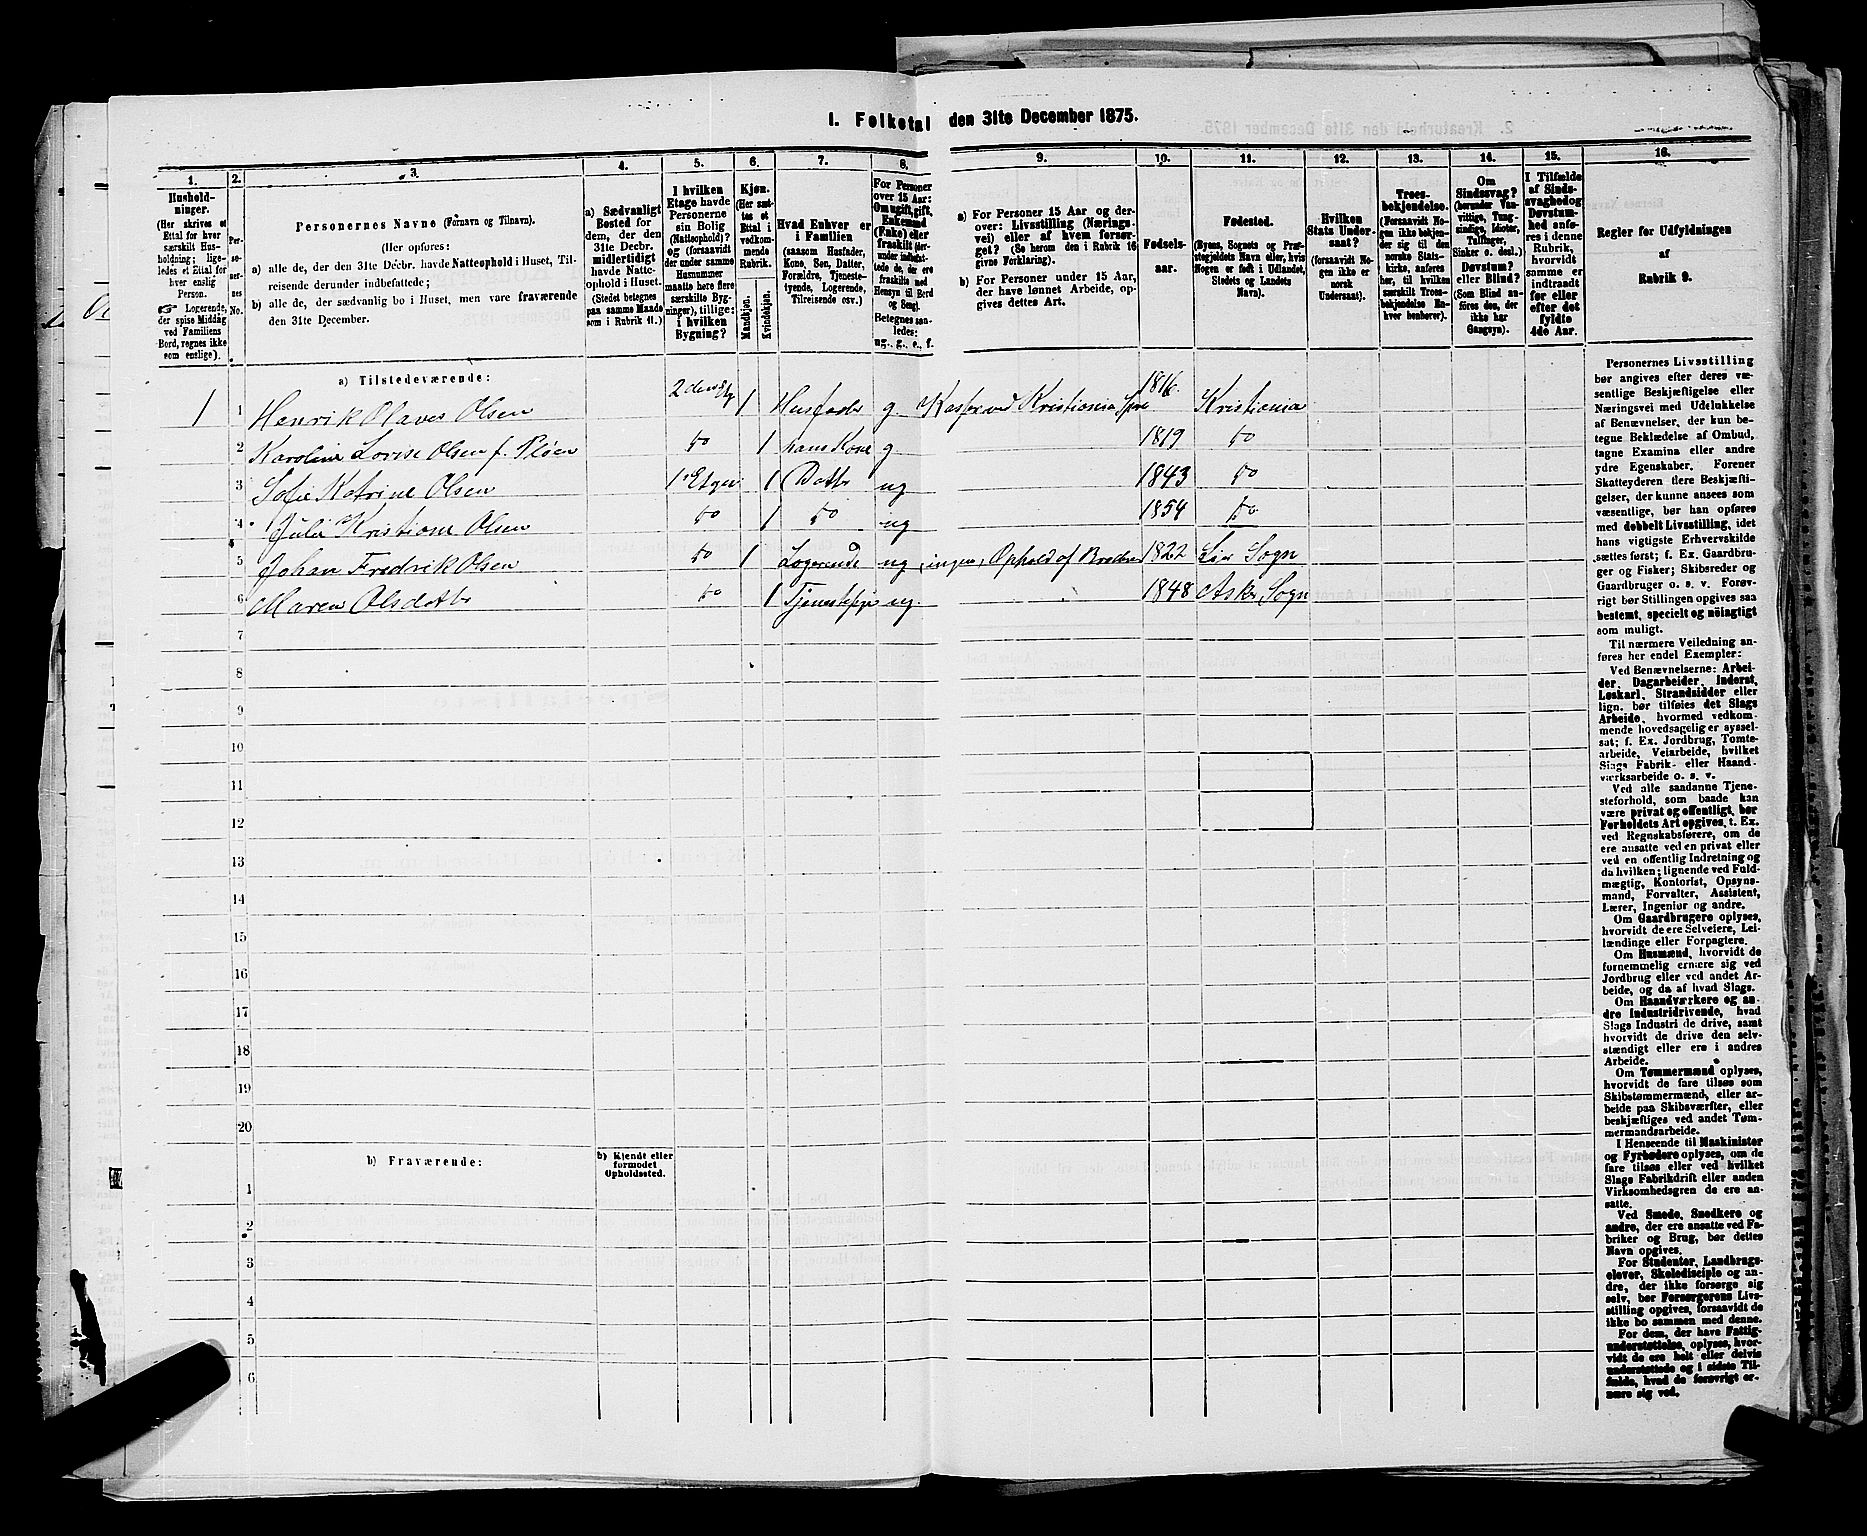 1. Folketal den 31te December 1875.
1. 2. 3. 4. 5. 6. 7. 8. 9. 10. 11. 12. 13. 14. 15. 16.
Hushold-
ninger.
(Her skrives et
Ettal for hver
særskilt Hus-
holdning; lige-
ledes et Ettal for
hver enslig
Person.
☞ Logerende,
der spise Middag
ved Familiens
Bord, regnes ikke
som enslige).
Per-
so-
ner-
nes
No.
Personernes Navne (Fornavn og Tilnavn).
(Her opføres:
a) alle de, der den 31te Decbr. havde Natteophold i Huset, Til-
reisende derunder indbefattede;
b) alle de, der sædvanlig bo i Huset, men vare fraværende
den 31te December.
a) Sædvanligt
Bosted for
dem, der den
31te Decbr.
midlertidigt
havde Natte-
ophold i Huset.
(Stedet betegnes
paa samme Maade
som i Rubrik 11.)
I hvilken
Etage havde
Personerne
sin Bolig
(Natteophold)?
og (forsaavidt
der under samme
Husnummer
maatte høre flere
særskilte Byg-
ninger), tillige:
i hvilken
Bygning?
Kjøn.
(Her sæt-
tes et
Ettal i
vedkom-
mende
Rubrik.
Mandkjøn.
Kvindekjøn.
Hvad Enhver er
i Familien
(saasom Husfader,
Kone, Søn, Datter,
Forældre, Tjeneste-
tyende, Logerende,
Tilreisende osv.)
For Personer
over 15 Aar:
Om ugift, gift,
Enkemand
(Enke) eller
fraskilt (der-
under indbefat-
tede de, der ere
fraskilte med
Hensyn til Bord
og Seng).
Betegnes saa-
ledes:
ug., g., e., f.
a) For Personer 15 Aar og der-
over: Livsstilling (Nærings-
vei) eller af hvem forsør-
get? (Se herom den i Rubrik 16
givne Forklaring).
b) For Personer under 15 Aar,
der have lønnet Arbeide, op-
gives dettes Art.
Fødsels-
aar.
Fødested.
(Byens, Sognets og Præ-
stegjeldets Navn eller, hvis
Nogen er født i Udlandet,
Stedets og Landets
Navn).
Hvilken
Stats Under-
saat?
(forsaavidt No-
gen ikke er
norsk
Undersaat).
Troes-
bekjendelse.
(Forsaavidt No-
gen ikke bekjen-
der sig til den
norske Stats-
kirke, anføres
her, til hvilken
særskilt Troes-
bekjendelse En-
hver henhører).
Om
Sindssvag?
(herunder Van-
vittige, Tung-
sindige, Idioter,
Tullinger,
Sinker o. desl.)
Døvstum?
eller Blind?
(Som Blind an-
føres den, der
ikke har
Gangsyn).
I Tilfælde
af Sinds-
svaghed og
Døvstum-
hed anfø-
res i denne
Rubrik,
hvorvidt
samme er
indtraadt
før eller
efter det
fyldte
4de Aar.
Regler for Udfyldningen
af
Rubrik 9.
a) Tilstedeværende:
1 1 Henrik Olaves Olsen 2den Etg 1 Husfader g. Kristiania 1816. Kristiania
2 Karoline Lovise Olsen f. Pløen do 1 hans Kone g 1819 do
3 Sofie Katrine Olsen 1 Etgen 1 Datter ug 1843 do
4 Julie Kristiane Olsen do 1 do ug 1854 do
5 Johan Fredrik Olsen do 1 Logerende ug ingen, Ophold af Broderen 1822 Lier Sogn
6 Maren Olsdatter do 1 Tjenestepige ug. 1848 Asker Sogn
7
8
9
10
11
12
13
14
15
16
17
18
19
20
b) Fraværende:
b) Kjendt eller
formodet
Opholdssted.
1
2
3
4
5
6
Personernes Livsstilling
bør angives efter deres væ-
sentlige Beskjæftigelse eller
Næringsvei med Udelukkelse
af Benævnelser, der kun be-
tegne Beklædelse af Ombud,
tagne Examina eller andre
ydre Egenskaber. Forener
Skatteyderen flere Beskjæfti-
gelser, der kunne ansees som
væsentlige, bør han opføres
med dobbelt Livsstilling, idet
hans vigtigste Erhvervskilde
sættes først; f. Ex. Gaardbru-
ger og Fisker; Skibsreder og
Gaardbruger o. s. v. Forøv-
rigt bør Stillingen opgives saa
bestemt, specielt og nøiagtigt
som muligt.
Til nærmere Veiledning an-
føres her endel Exempler:
Ved Benævnelserne: Arbei-
der, Dagarbeider, Inderst,
Løskarl, Strandsidder eller
lign. bør tilføies det Slags
Arbeide, hvormed vedkom-
mende hovedsagelig er syssel-
sat; f. Ex. Jordbrug, Tomte-
arbeide, Veiarbeide, hvilket
Slags Fabrik- eller Haand-
værksarbeide o. s. v.
Ved alle saadanne Tjene-
steforhold, som baade kan
være privat og offentligt, bør
Forholdets Art opgives, t. Ex.
ved Regnskabsførere, om de
ere ansatte ved en privat eller
ved en offentlig Indretning og
da hvilken; lignende ved Fuld-
mægtig, Kontorist, Opsyns-
mand, Forvalter, Assistent,
Lærer, Ingeniør og andre.
Om Gaardbrugere oplyses,
hvorvidt de ere Selveiere, Lei-
lændinge eller Forpagtere.
Om Husmænd, hvorvidt de
fornemmelig ernære sig ved
Jordbrug eller ved andet Ar-
beide, og da af hvad Slags.
Om Haandværkere og an-
dre Industridrivende, hvad
Slags Industri de drive, samt
hvorvidt de drive den selv-
stændigt eller ere i andres
Arbeide.
Om Tømmermænd oplyses,
hvorvidt de fare tilsøs som
Skibstømmermænd, eller ar-
beide paa Skibsværfter, eller
beskjæftiges ved andet Tøm-
mermandsarbeide.
I Henseende til Maskinister
og Fyrbødere oplyses, om de
fare tilsøs eller ved hvilket
Slags Fabrikdrift eller anden
Virksomhedsgren de ere an-
satte.
Ved Smede, Snedkere og
andre, der ere ansatte ved Fa-
briker og Brug, bør dettes
Navn opgives.
For Studenter, Landbrugs-
elever, Skoledisciple og an-
dre, der ikke forsørge sig
selv, bør Forsørgerens Livs-
stilling opgives, forsaavidt de
ikke bo sammen med denne.
For dem, der have Fattig-
understøttelse, oplyses, hvor-
vidt de ere helt eller delvis
understøttede og i sidste Til-
fælde, hvad de forøvrigt er-
nære sig ved.